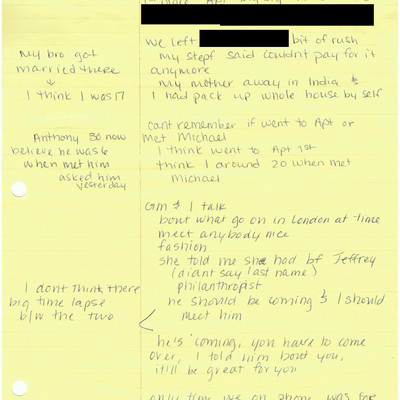 we left bit of rush
my stepf said couldnt pay for it
anymore
my mother away in India &
I had pack up whole house by self
My bro got
married there
I think I was 17
cant remember if went to Apt or
met Michael
I think went to Apt 1st
think I around 20 when met
Michael
Anthony 30 now
believe he was 6
when met him
asked him
yesterday
GM & I talk
bout what go on in London at time
meet anybody nice
fashion
she told me she had bf Jeffrey
(didnt say last name)
philanthropist
he should be coming & I should
meet him
I dont think there
big time lapse
b/w the two
he's coming, you have to come
over, I told him bout you,
it'll be great for you
only time we on phone was for